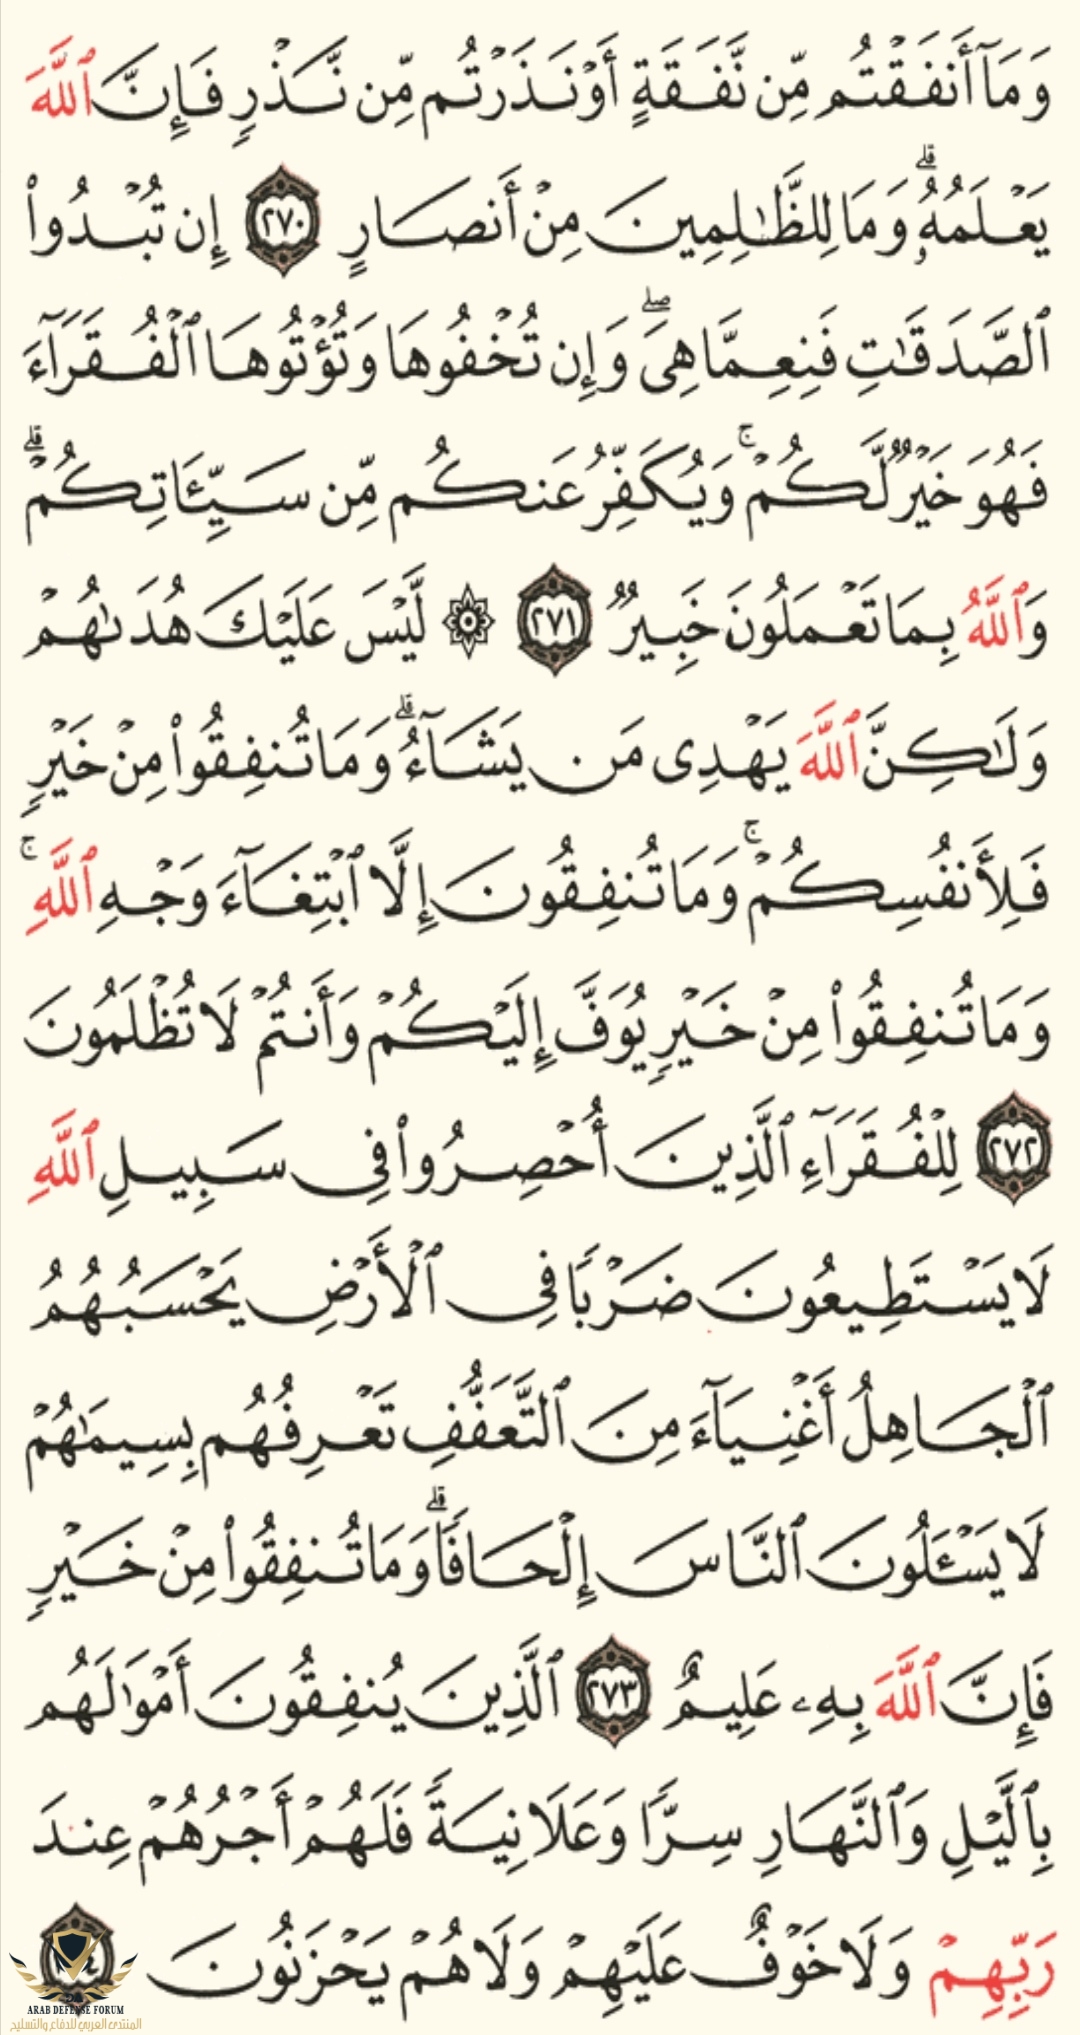 وَمَآ أَنفَقْتُم مِّن نَّفَقَةٍ أَوْ نَذَرْتُم مِّن نَّذْرٍ فَإِنَّ ٱللَّهَ
يَعْلَمُهُۥ ۗ وَمَا لِلظَّٰلِمِينَ مِنْ أَنصَارٍ ٢٧٠ إِن تُبْدُوا۟
ٱلصَّدَقَٰتِ فَنِعِمَّا هِىَ ۖ وَإِن تُخْفُوهَا وَتُؤْتُوهَا ٱلْفُقَرَآءَ
فَهُوَ خَيْرٌ لَّكُمْ ۚ وَيُكَفِّرُ عَنكُم مِّن سَيِّـَٔاتِكُمْ ۗ
وَٱللَّهُ بِمَا تَعْمَلُونَ خَبِيرٌ ٢٧١ ۞ لَّيْسَ عَلَيْكَ هُدَىٰهُمْ
وَلَٰكِنَّ ٱللَّهَ يَهْدِى مَن يَشَآءُ ۗ وَمَا تُنفِقُوا۟ مِنْ خَيْرٍ
فَلِأَنفُسِكُمْ ۚ وَمَا تُنفِقُونَ إِلَّا ٱبْتِغَآءَ وَجْهِ ٱللَّهِ ۚ
وَمَا تُنفِقُوا۟ مِنْ خَيْرٍ يُوَفَّ إِلَيْكُمْ وَأَنتُمْ لَا تُظْلَمُونَ
٢٧٢ لِلْفُقَرَآءِ ٱلَّذِينَ أُحْصِرُوا۟ فِى سَبِيلِ ٱللَّهِ
لَا يَسْتَطِيعُونَ ضَرْبًا فِى ٱلْأَرْضِ يَحْسَبُهُمُ
ٱلْجَاهِلُ أَغْنِيَآءَ مِنَ ٱلتَّعَفُّفِ تَعْرِفُهُم بِسِيمَٰهُمْ
لَا يَسْـَٔلُونَ ٱلنَّاسَ إِلْحَافًا ۗ وَمَا تُنفِقُوا۟ مِنْ خَيْرٍ
فَإِنَّ ٱللَّهَ بِهِۦ عَلِيمٌ ٢٧٣ ٱلَّذِينَ يُنفِقُونَ أَمْوَٰلَهُم
بِٱلَّيْلِ وَٱلنَّهَارِ سِرًّا وَعَلَانِيَةً فَلَهُمْ أَجْرُهُمْ عِندَ
رَبِّهِمْ وَلَا خَوْفٌ عَلَيْهِمْ وَلَا هُمْ يَحْزَنُونَ
ARAB DEFENSE FORUM
المنتدى العربي للدفاع والتسليح